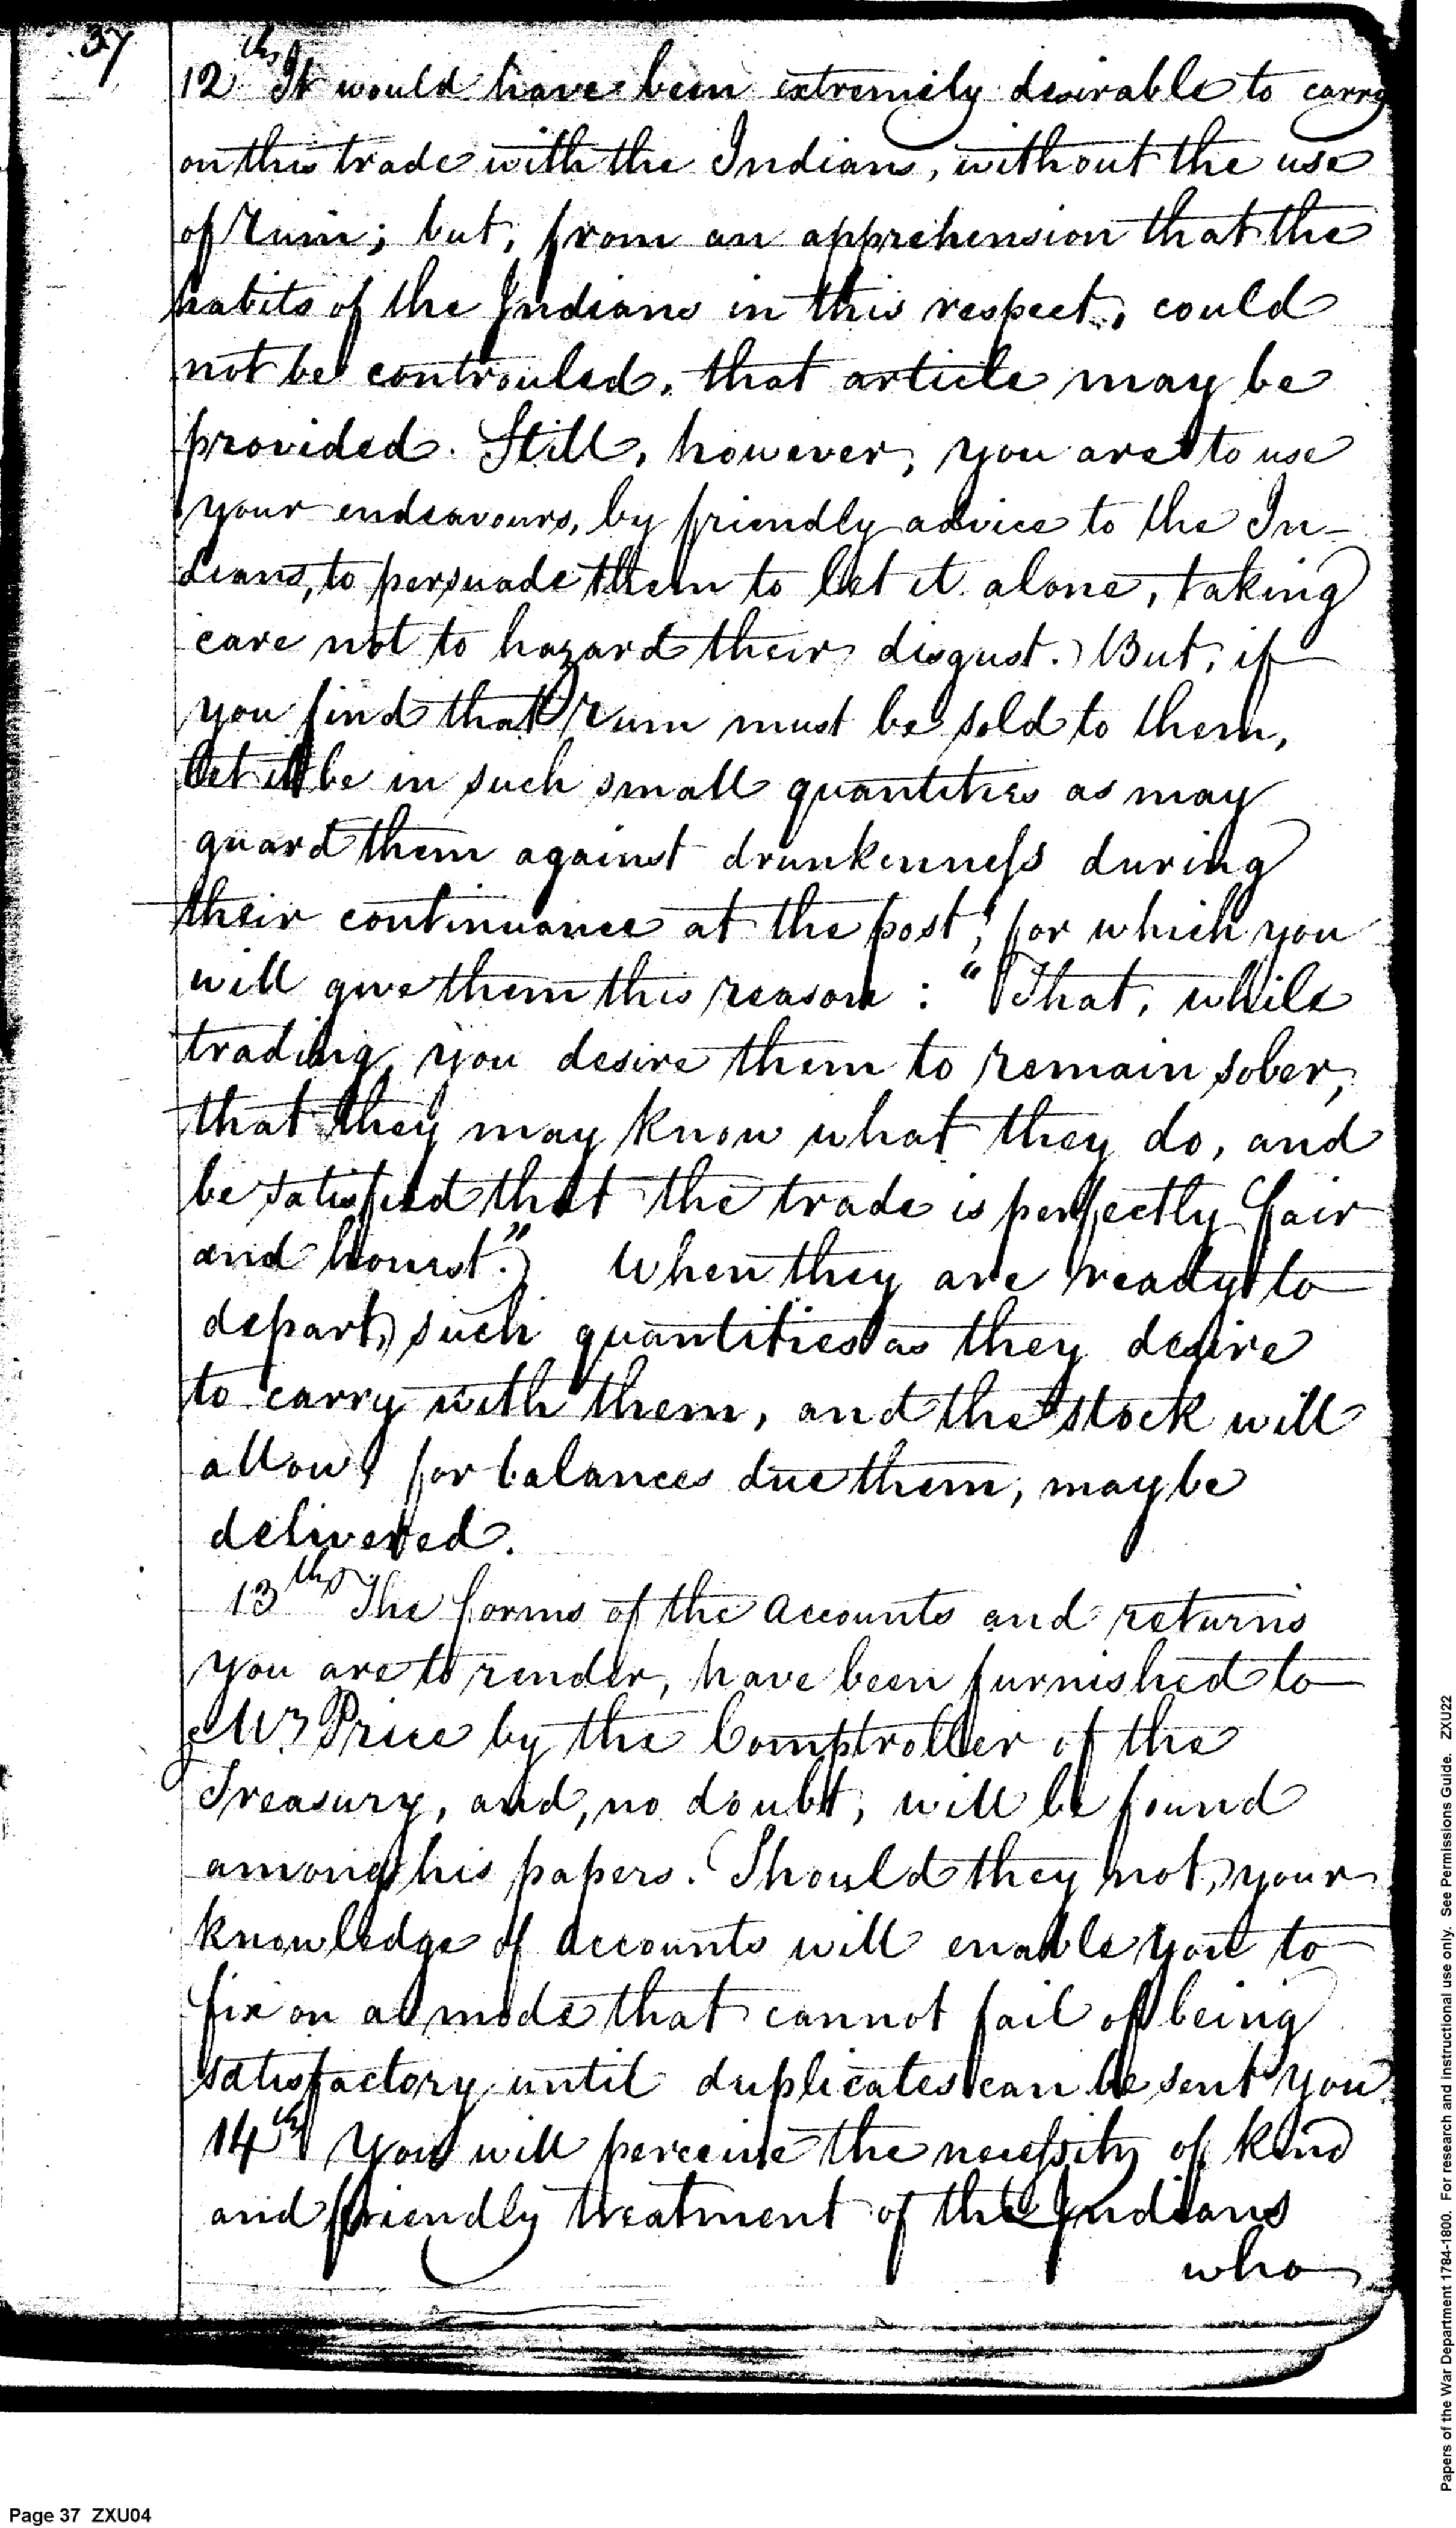 37
12th It would have been extremely desirable to carry
on this trade with the Indians, without the use
of rum; but, from an apprehension that the
habits of the Indians in this respect, could
not be controuled, that article may be
provided. Still, however, you are to use
your endeavours, by friendly advice to the In-
dians, to persuade them to let it alone, taking
care not to hazard their disgust. But, if
you find that rum must be sold to them,
let it be in such small quantities as may
guard them against drunkenness during
their continuance at the post, for which you
will give them this reason: "That, while
trading, you desire them to remain sober,
that they may know what they do, and
be satisfied that the trade is perfectly fair
and honest." When they are ready to
depart, such quantities as they desire
to carry with them, and the stock will
allow, for balances due them, may be
delivered.
13th The forms of the accounts and returns
you are to render, have been furnished to
Mr Price by the Comptroller of the
Treasury, and, no doubt, will be found
among his papers. Should they not, your
knowledge of accounts will enable you to
fix on a mode that cannot fail of being
satisfactory until duplicates can be sent you.
14th You will perceive the necessity of kind
and friendly treatment of the Indians
who
Page 37 ZXU04
Papers of the War Department 1784-1800. For research and instructional use only. See Permissions Guide. ZXU22